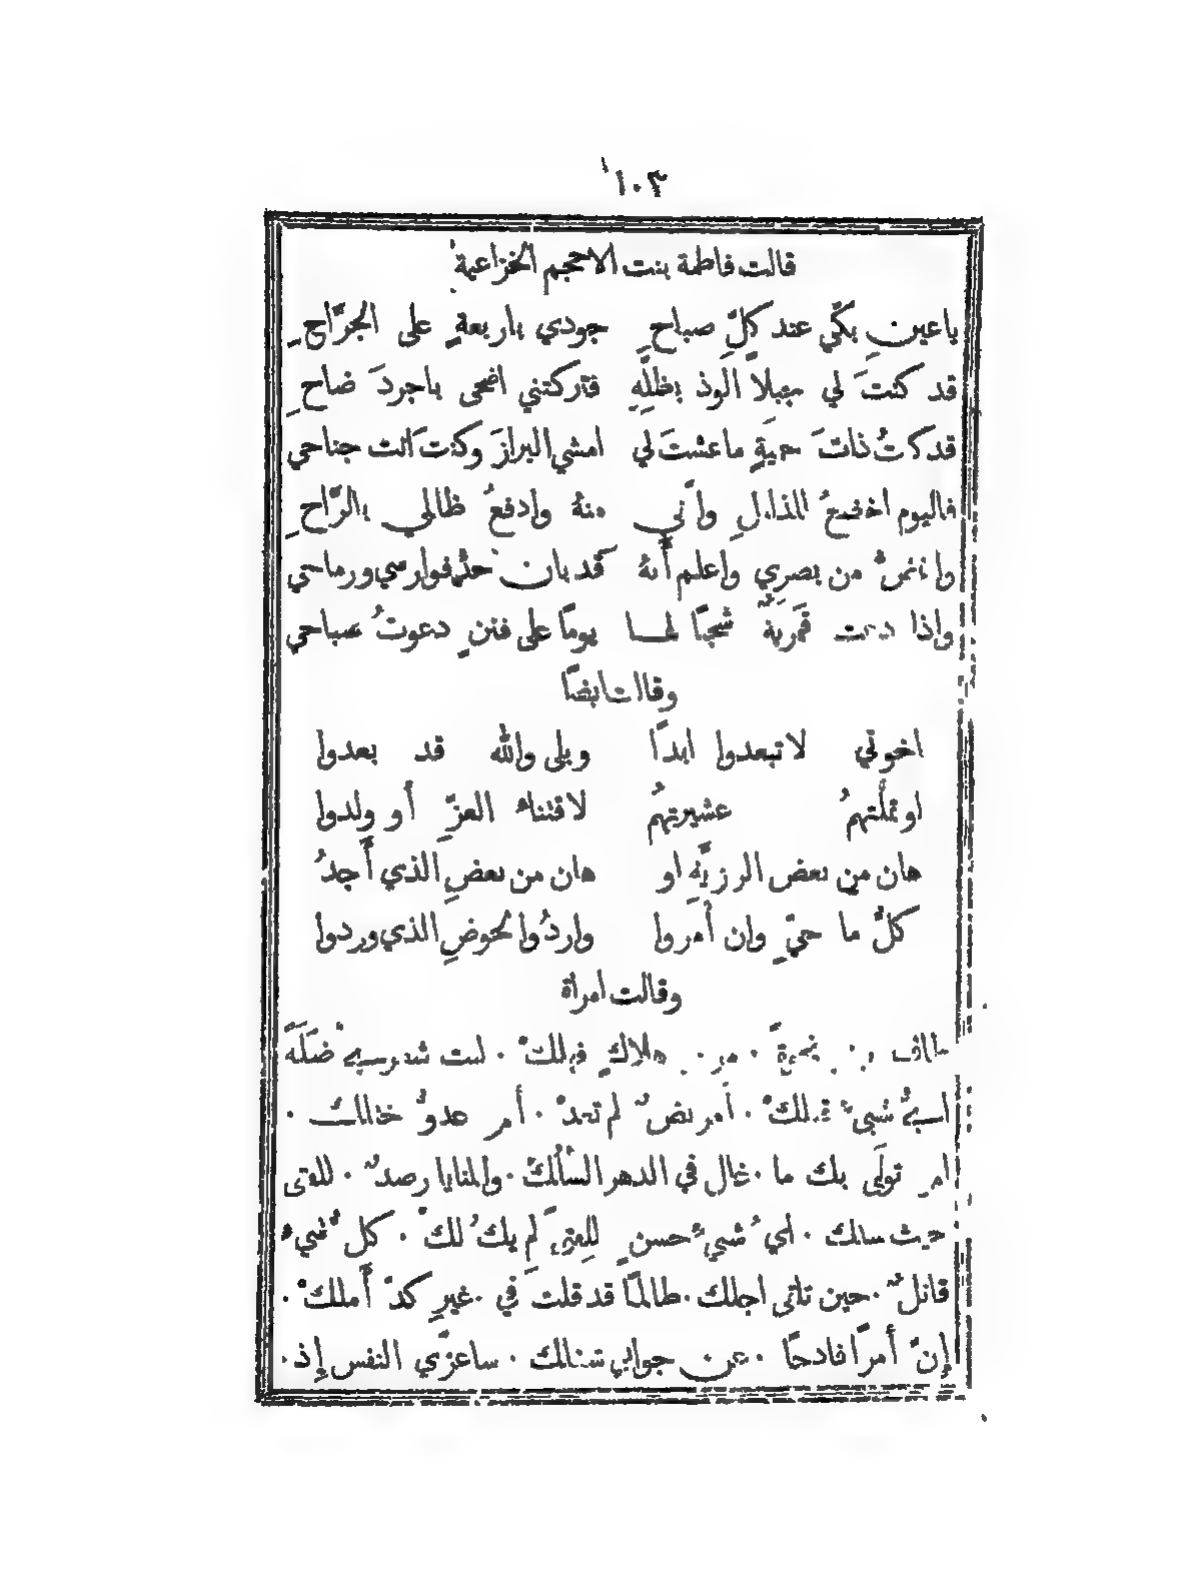 ١٠٣
قالت فاطمة بنت الاحجم الخزاعية
ياعينِ بكّي عند كلِّ صباحِ جودي باربعةٍ على الجرّاحِ
قد كنتَ لي جبلاً الوذ بظلِّهِ فتركتني اضحى باجردَ ضاحِ
قد كنتُ ذاتَ حميةٍ ما عشتَ لي امشي البرازَ وكنتَ انت جناحي
فاليوم اخضعُ للذليلِ واتّقي منهُ وادفعُ ظالمي بالرّاحِ
واغضُّ من بصرِي واعلم أنهُ قد بان حدُّ فوارسي ورماحي
واذا دعت قمريَةٌ شجبًا لهـا يومًا على فننٍ دعوتُ صباحي
وقالت ايضًا
اخوتي لا تبعدوا ابدًا وبلى والله قد بعدوا
او تملَّتهمُ عشيرتهمُ لاقتناء العزّ أو ولدوا
هان من بعض الرزيَّةِ او هان من بعضِ الذي أَجدُ
كلُّ ما حيٍّ وان أمروا واردُوا لحوضِ الذي وردوا
وقالت امراة
طاف نجوةً ٠ من هلاكٍ فهلكْ ٠ ليت شعرـي ضلَّةً
ايُّ شيءٍ قتلكْ ٠ أمريضٌ لم تعدْ ٠ أم عدوٌّ ختلك ٠
ام تولَّى بك ما ٠ غال في الدهر السُّلَكْ ٠ والمنايا رصدٌ ٠ للفتى
حيث سلك ٠ أيُّ شيءٍ حسنٍ للفتىً لم يكُ لكْ ٠ كلُّ شيءٍ
قاتلٌ ٠ حين تلقى اجلك ٠ طالمًا قد قلتَ في ٠ غيرِ كدٍّ أَملكْ ٠
إنّ أمرًا فادحًا ٠ عن جوابي شغلك ٠ ساعزّي النفس إذ ٠